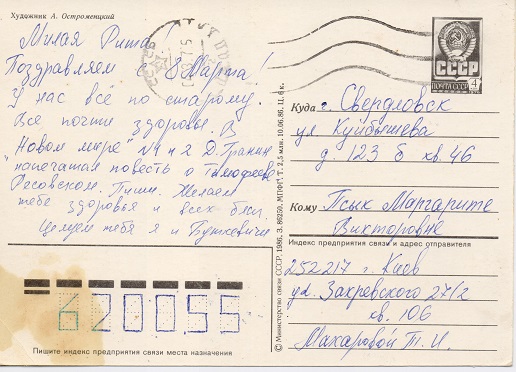 Художник А. Остроменцкий
Милая Рита!
Поздравляем с 8 Марта!
У нас всё по старому.
Все почти здоровы. В
"Новом мире" №1 и 2 Д. Гранин
напечатал повесть о Тимофееве
Ресовском. Пиши. Желаем
тебе здоровья и всех благ.
Целуем тебя я и Буткевичи
620055
Пишите индекс предприятия связи места назначения
© Министерство связи СССР, 1986. З. 86250. МПФГ. Т. 2,5 млн. 10.06.86. Ц. 6 к.
ПОЧТА СССР
4
СССР
Куда г. Свердловск
ул Куйбышева
д. 123 б кв. 46
Кому Псык Маргарите
Викторовне
Индекс предприятия связи и адрес отправителя
252217 г. Киев
ул. Закревского 27/2
кв. 106
Макаровой Т. И.